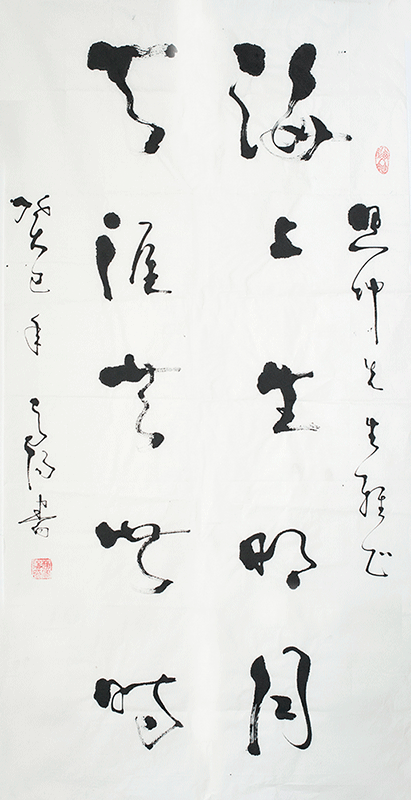 先生雅正
海上生明月
天涯共此時
癸巳年 書